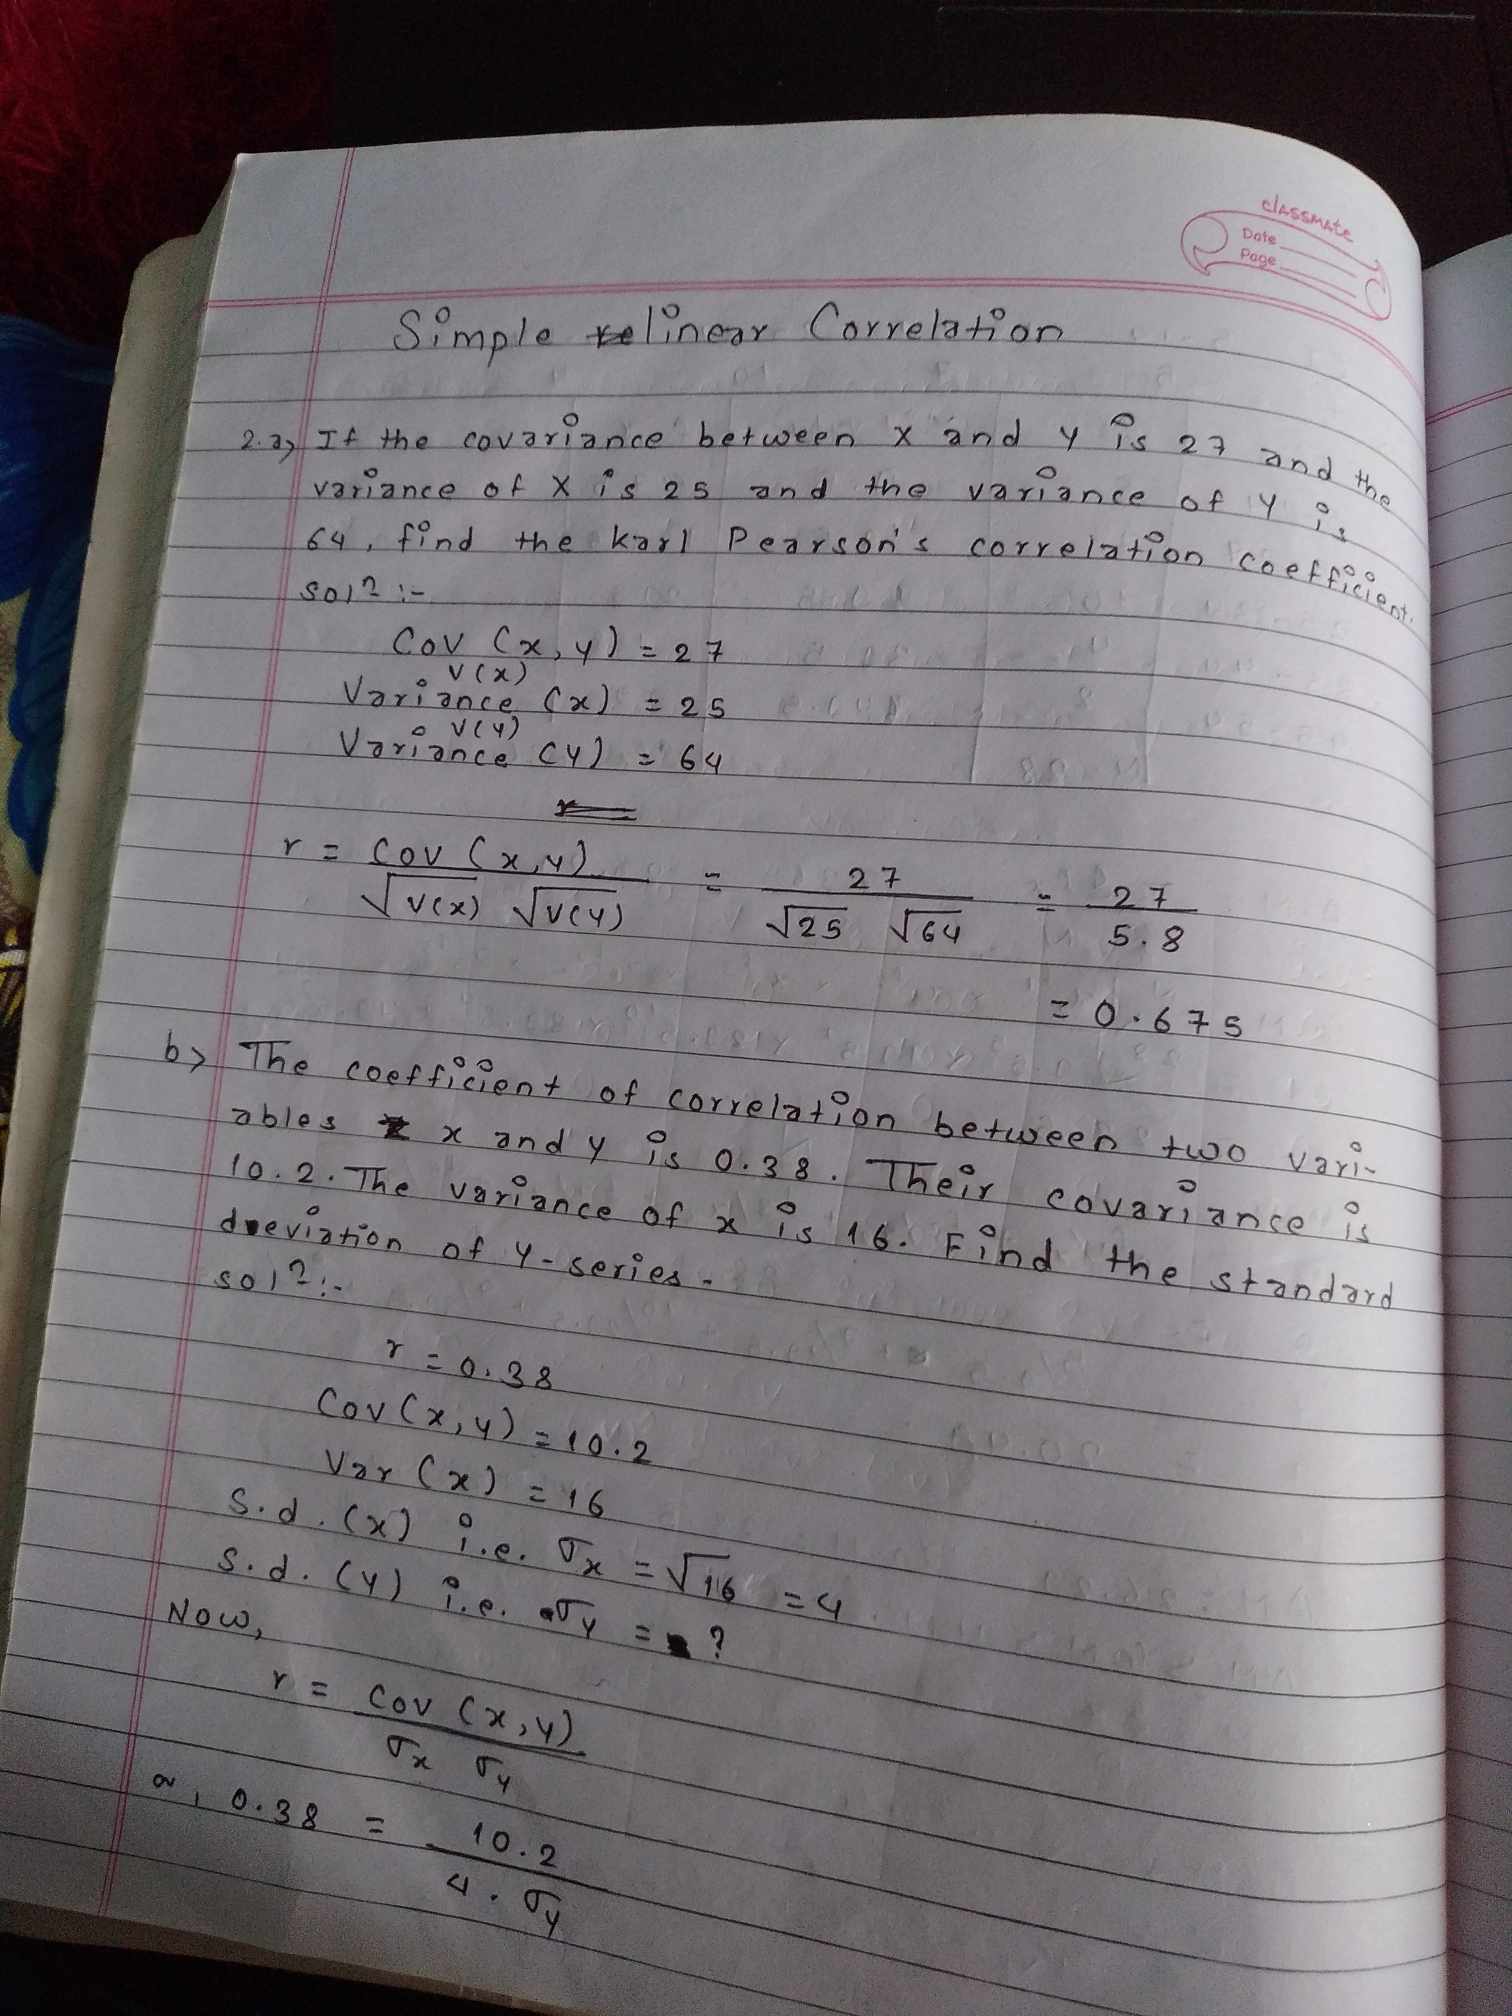 classmate
Date
Page
Simple linear Correlation
2.a) If the covariance between X and Y is 27 and the
variance of X is 25 and the variance of Y is
64, find the karl Pearson's correlation coefficient.
solⁿ :-
Cov (x, y) = 27
V(x)
Variance (x) = 25
V(y)
Variance (y) = 64
r = Cov (x,y) / √V(x) √V(y) = 27 / √25 √64 = 27 / 5.8
= 0.675
b) The coefficient of correlation between two vari-
ables x and y is 0.38. Their covariance is
10.2. The variance of x is 16. Find the standard
deviation of y-series.
solⁿ :-
r = 0.38
Cov (x, y) = 10.2
Var (x) = 16
s.d. (x) i.e. σx = √16 = 4
s.d. (y) i.e. σy = ?
Now,
r = Cov (x, y) / σx σy
or, 0.38 = 10.2 / 4 . σy